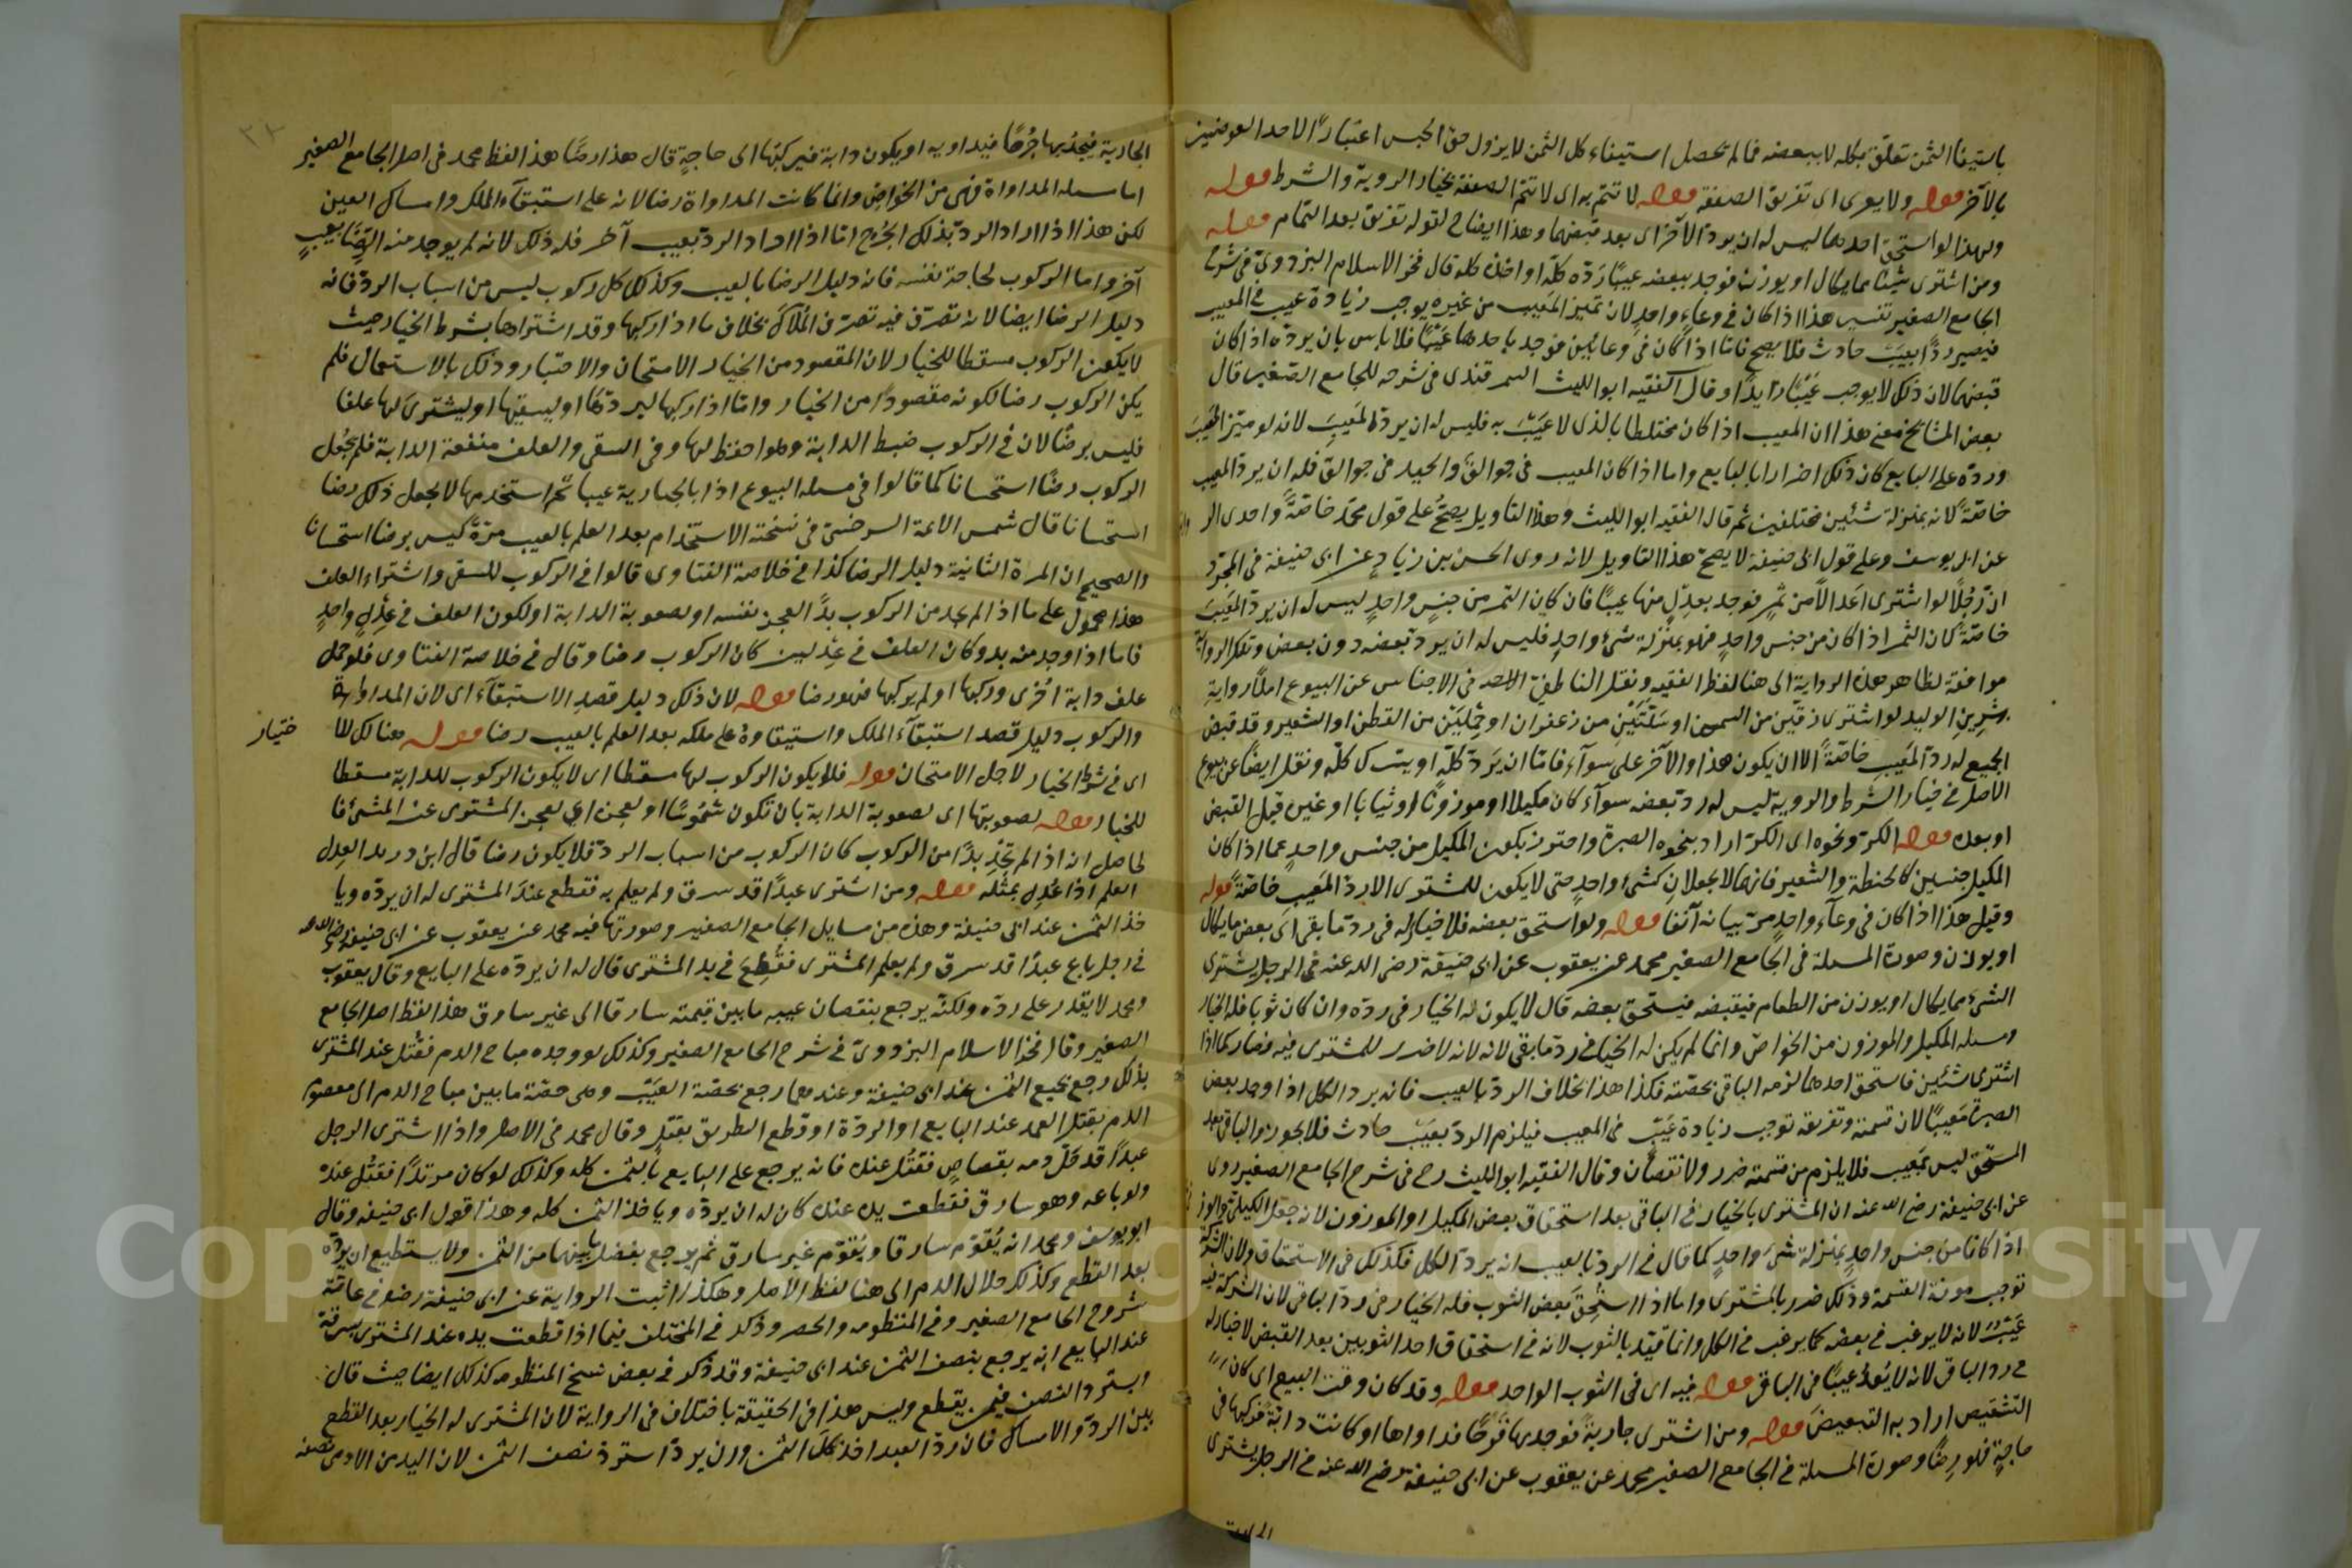 باستيفاء الثمن تعلق بكله لا ببعضه فما لم يحصل استيفاء كل الثمن لا يزول حق الحبس اعتبارًا لاحد العوضين
بالآخر قوله ولا يعرى اى تفريق الصفقة قوله لا تتم به اى لا تتم الصفقة بخيار الروية والشرط قوله
ولهذا لو استحق احدهما ليس له ان يرد الآخر اى بعد قبضهما وهذا ايضاح لقوله تفريق بعد التمام قوله
ومن اشترى شيئا مما يكال او يوزن فوجد ببعضه عيبًا رَدّه كلّه او اخذه كله قال فخر الاسلام البزدوى فى شرح
الجامع الصغير تفسير هذا اذا كان فى وعاءٍ واحدٍ لان تميز المعيب من غيره يوجب زيادة عيب فى المعيب
فيصير ردًّا بعيب حادث فلا يصح فاما اذا كان فى وعائين فوجد باحدهما عَيْبًا فلا باس بان يردّه اذا كان
قبضهما لان ذلك لا يوجب عَيْبًا زايدًا وقال الفقيه ابو الليث السمرقندى فى شرحه للجامع الصغير قال
بعض المشايخ معنى هذا ان المعيب اذا كان مختلطا بالذى لا عيب به فليس له ان يردّ المَعيب لانه لو ميّز المعيب
وردّه على البايع كان ذلك اضرارا بالبايع واما اذا كان المعيب فى جوالق والجيد فى جوالق فله ان يردّ المعيب
خاصّةً لانه بمنزلة شئين مختلفين ثم قال الفقيه ابو الليث وهذا التاويل يصحّ على قول محمّد خاصّةً واحدى الر
عن ابى يوسف وعلى قول ابى حنيفة لا يصح هذا التاويل لانه روى الحسن بن زيادٍ عن ابى حنيفة فى المجرّد
ان رَجُلًا لو اشترى اَعدالًا من تمرٍ فوجد بعدِلٍ منها عيبًا فان كان التمر من جنسٍ واحدٍ ليس له ان يردّ المعيب
خاصّةً لان الثمر اذا كان من جنس واحدٍ فهو بمنزلة شىءٍ واحدٍ فليس له ان يردّ بعضه دون بعض وتلك الرواية
موافقة لظاهر هذه الرواية الى هنا لفظ الفقيه ونقل الناطفىّ فى الاجناس عن البيوع املآ رواية
بشر بن الوليد لو اشترى زقّين من السمن او سَلّتَيْن من زعفران او حِمْلَيْن من القطن او الشعير وقد قبض
الجميع له ردّ المَعيبِ خاصّةً الا ان يكون هذا والآخر على سوآء فامّا ان يَردّ كلّه او يترك كلّه ونقل ايضًا عن بيوع
الاصل فى خيار الشرط والروية ليس له ردّ بعضه سوآء كان مكيلا او موزونًا او ثيابا او غيره قبل القبض
او بعده قوله الكرّ ونحوه اى الكرّ اراد بنحوه الصبرة واحترز بكون المكيل من جنس واحدٍ عما اذا كان
المكيل جنسين كالحنطة والشعير فانهما لا يجعلان كشىءٍ واحدٍ حتى لا يكون للمشترى الا ردّ المَعيب خاصّةً قوله
وقيل هذا اذا كان فى وعآءٍ واحدٍ مرّ بيانه آنفا قوله ولو استحق بعضه فلا خيار له فى ردّ ما بقى اى بعض ما يكال
او يوزن وصورة المسلة فى الجامع الصغير محمد عن يعقوب عن ابى حنيفة رضى الله عنه فى الرجل يشترى
الشىء مما يكال او يوزن من الطعام فيقبضه فيستحق بعضه قال لا يكون له الخيار فى ردّه وان كان ثوبا فله الخيار
ومسله المكيل والموزون من الخواصّ وانما لم يكن له الخيار فى ردّ ما بقى لانه لا ضرر للمشترى فيه فصار كما اذا
اشترى شئين فاستحق احدهما لزمه الباقى بحصّته فكذا هذا بخلاف الردّ بالعيب فانه يرد الكل اذا وجد بعض
الصبرة مَعيبًا لان قسمته وتفريقه توجب زيادة عَيْبٍ فى المعيب فيلزم الردّ بعَيْب حادث فلا يجوز والباقى بعد
المستحَق ليس بمَعيب فلا يلزم من قسمته ضرر ولا نقصان وقال الفقيه ابو الليث رح فى شرح الجامع الصغير روى
عن ابى حنيفة رضى الله عنه ان المشترى بالخيار فى الباقى بعد استحقاق بعض المكيل او الموزون لانه جعل الكيلىّ والوز
اذا كانا من جنس واحدٍ بمنزلة شىء واحدٍ كما قال فى الردّ بالعيب انه يردّ الكل فكذلك فى الاستحقاق ولان الشركة
توجب مونة القسمة وذلك ضرر بالمشترى واما اذا استُحِقّ بعض الثوب فله الخيار فى ردّ الباقى لان الشركة فيه
عَيْبٌ لانه لا يرغب فى بعضه كما يرغب فى الكل وانما قيّد بالثوب لانه فى استحقاق احد الثوبين بعد القبض لا خيار له
فى رد الباقى لانه لا يُعدّ عيبًا فى الباقى قوله فيه اى فى الثوب الواحد قوله وقد كان وقت البيع اى كان
التشقيص اراد به التبعيض قوله ومن اشترى جارية فوجد بها قرحًا فداواها او كانت دابّةً فركبها فى
حاجةٍ فهو رِضًا وصورة المسلة فى الجامع الصغير محمد عن يعقوب عن ابى حنيفة رضى الله عنه فى الرجل يشترى
الجارية فيجد بها جُرحًا فيداويه او يكون دابة فيركبها الى حاجةٍ قال هذا رضًا هذا لفظ محمد فى اصل الجامع الصغير
اما مسله المداواة فهى من الخواصّ وانما كانت المداواة رضا لانه على استبقآء الملك وامساك العين
لكن هذا اذا اراد الردّ بذلك الجُرح امّا اذا اراد الردّ بعيب آخر فله ذلك لانه لم يوجد منه الرِّضا بعيبٍ
آخر واما الركوب لحاجة نفسه فانه دليل الرضا بالعيب وكذلك كل ركوب ليس من اسباب الردّ فانه
دليل الرضا ايضا لانه تصرّف فيه تصرّف المُلّاك بخلاف ما اذا ركبها وقد اشتراها بشرط الخيار حيث
لا يكون الركوب مسقطا للخيار لان المقصود من الخيار الامتحان والاختبار وذلك بالاستعمال فلم
يكن الركوب رضا لكونه مقصودًا من الخيار وامّا اذا ركبها ليردّها او ليسقيها او ليشترى لها علفا
فليس برضًا لان فى الركوب ضبط الدابة وهو احفظ لها وفى السقى والعلف منفعة الدابة فلم يُجعل
الركوب رضًا استحسانا كما قالوا فى مسله البيوع اذا بالجارية عيبا ثم استخدمها لا يجعل ذلك رضا
استحسانا قال شمس الائمة السرخسىّ فى نسخته الاستخدام بعد العلم بالعيب مرّةً ليس برضا استحسانا
والصحيح ان المرة الثانية دليل الرضا كذا فى خلاصة الفتاوى قالوا فى الركوب للسقى واشتراء العلف
هذا محمول على ما اذا لم يجد من الركوب بدًّا لعجز نفسه او لصعوبة الدابة او لكون العلف فى عِدْلٍ واحدٍ
فاما اذا وجد منه بد وكان العلف فى عِدْلين كان الركوب رضا وقال فى خلاصة الفتاوى فلو حمل
علف دابة اُخرى وركبها او لم يركبها فهو رضا قوله لان ذلك دليل قصدِ الاستبقآء اى لان المداواة
والركوب دليل قصد استبقآء الملك واستيقاؤه على ملكه بعد العلم بالعيب رضا قوله هنالك للا
ختيار
اى فى شرط الخيار لاجل الامتحان قوله فلا يكون الركوب لها مسقطا اى لا يكون الركوب للدابة مسقطا
للخيار قوله لصعوبتها اى لصعوبة الدابة بان تكون شَمُوسًا او لعجزه اى لعجز المشترى عن المشى فا
لحاصل انه اذا لم يَجِدْ بدًّا من الركوب كان الركوب من اسباب الردّ فلا يكون رضا قال ابن دريد العِدل
العلم اذا عُدِل بمثله قوله ومن اشترى عبدًا قد سرق ولم يعلم به فقطع عندَ المشترى له ان يردّه ويا
خذ الثمن عند ابى حنيفة وهذه من مسايل الجامع الصغير وصورتها فيه محمد عن يعقوب عن ابى حنيفة رضى الله عنه
فى رجل باع عبدًا قد سرق ولم يعلم المشترى فقُطِعَ فى يد المشترى قال له ان يردّه على البايع وقال يعقوب
ومحمد لا يقدر على ردّه ولكنّه يرجع بنقصان عيبه ما بين قيمته سارقا الى غير سارق هذا لفظ اصل الجامع
الصغير وقال فخر الاسلام البزدوىّ فى شرح الجامع الصغير وكذلك لو وجده مباح الدم فقُتل عند المشترى
بذلك رجع بجميع الثمن عند ابى حنيفة وعندهما رجع بحصّة العَيْب وهى حصّة ما بين مباح الدم الى معصوم
الدم بقتل العمد عند البايع او الردّة او قطع الطريق بقتل وقال محمد فى الاصل واذا اشترى الرجل
عبدًا قد حَلّ دمه بقصاصٍ فقُتل عنده فانه يرجع على البايع بالثمن كله وكذلك لو كان مرتدًّا فقُتل عنده
ولو باعه وهو سارق فقطعت يده عنده كان له ان يردّه ويا خذ الثمن كله وهذا قول ابى حنيفه وقال
ابو يوسف ومحمد انه يُقوّم سارقا ويُقوّم غير سارق ثم يرجع بفضل ما بينهما من الثمن ولا يستطيع ان يردّه
بعد القطع وكذلك حلال الدم الى هنا لفظ الاصل وهكذا اثبت الرواية عن ابى حنيفة رضه فى عامّة
شروح الجامع الصغير وفى المنظومه والحصر وذكر فى المختلف فيما اذا قطعت يده عند المشترى بسرقة
عند البايع انه يرجع بنصف الثمن عند ابى حنيفة وقد ذكر فى بعض نسخ المنظومه كذلك ايضا حيث قال
استردّ النصف فيمن يقطع وليس هذا فى الحقيقة باختلاف فى الرواية لان المشترى له الخيار بعد القطع
بين الردّ والامساك فان ردّ العبد اخذ كلّ الثمن وان لم يردّ استردّ نصف الثمن لان اليد من الادمى نصفه